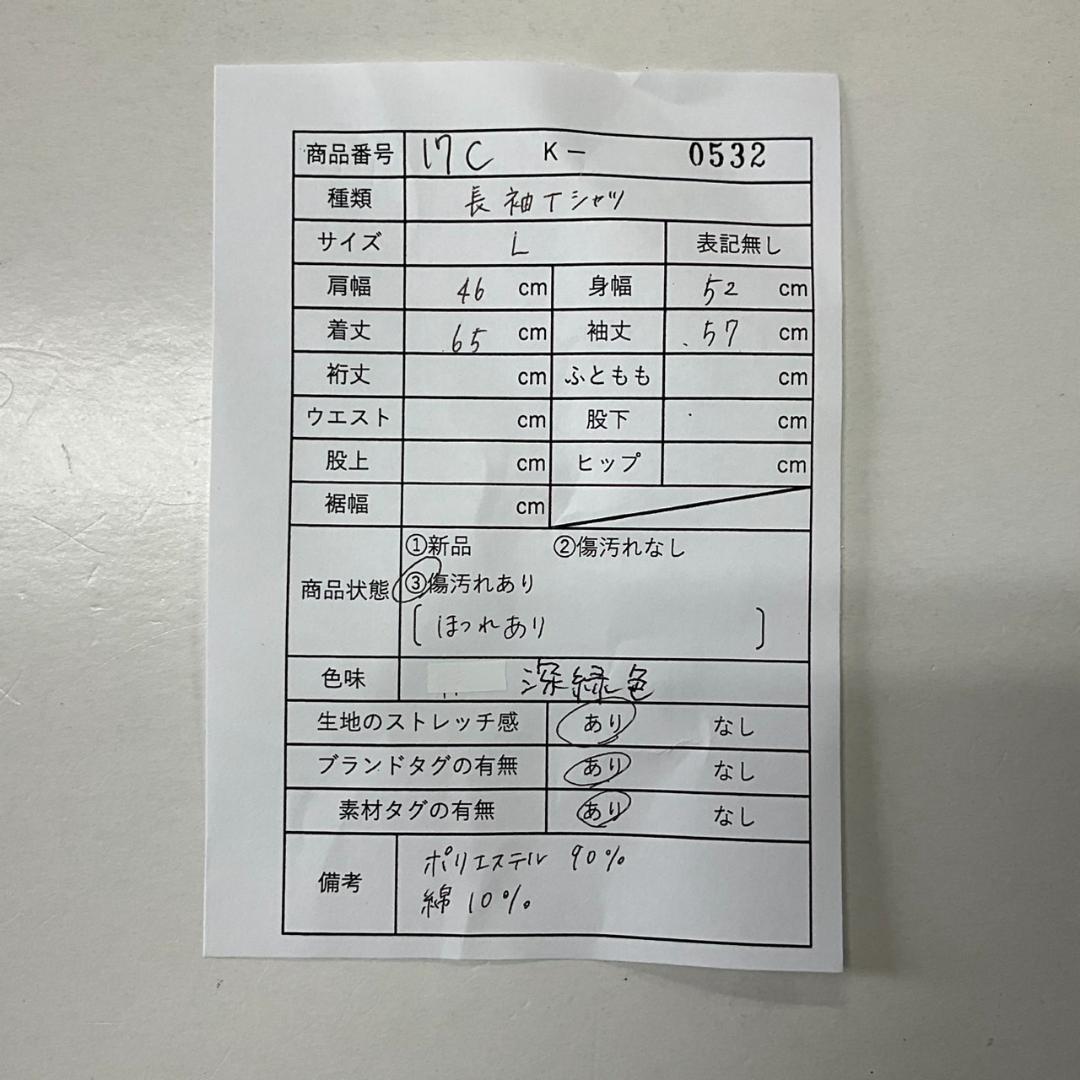 商品番号 17C K− 0532
種類 長袖Tシャツ
サイズ L 表記無し
肩幅 46 cm 身幅 52 cm
着丈 65 cm 袖丈 57 cm
裄丈 cm ふともも cm
ウエスト cm 股下 cm
股上 cm ヒップ cm
裾幅 cm
①新品 ②傷汚れなし
商品状態 ③傷汚れあり
[ほつれあり]
色味 深緑色
生地のストレッチ感 あり なし
ブランドタグの有無 あり なし
素材タグの有無 あり なし
備考 ポリエステル 90%
綿 10%